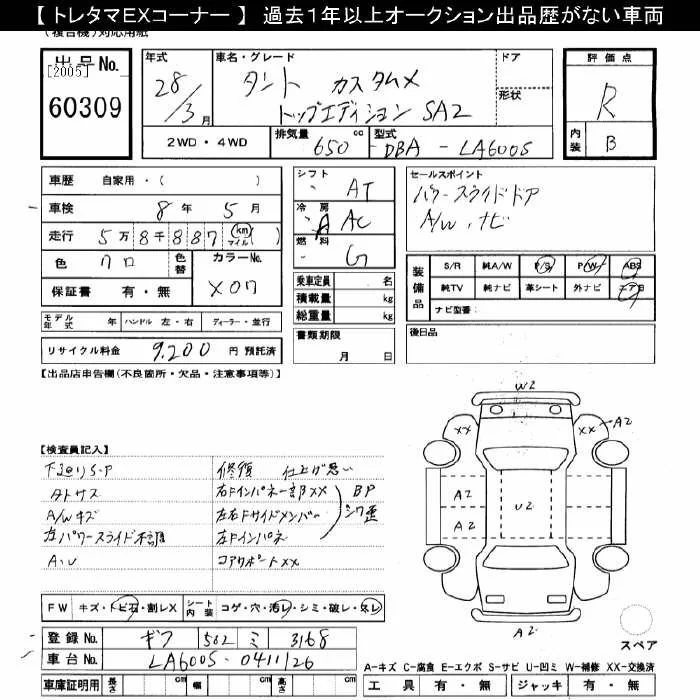 【 トレタマEXコーナー 】 過去1年以上オークション出品歴がない車両
出品No.
[2005]
60309
年式
28/3月
車名・グレード
タント カスタムX
トップエディション SA2
ドア
形状
評価点
R
内装
B
2WD・4WD
排気量
650 cc
型式
DBA - LA600S
車歴 自家用・( )
車検 8年 5月
走行 5万8千887 (km マイル)( )
色 クロ
色替
カラーNo.
X07
保証書 有・無
モデル年式 年 ハンドル 左・右 ディーラー・並行
リサイクル料金 9,200 円 預託済
シフト AT
冷房 AAC
燃料 G
乗車定員 名
積載量 kg
総重量 kg
書類期限
月 日
セールスポイント
パワースライドドア
A/W、ナビ
装備品
S/R 純A/W P/S P/W ABS
純TV 純ナビ 革シート 外ナビ エアB
ナビ型番:
後日品
【出品店申告欄(不良箇所・欠品・注意事項等)】
W2
XX
XX
A2
A2
U2
A2
A2
スペア
【検査員記入】
下廻りS・P
外サス
A/Wキズ
左パワースライド不調
A・U
修復 仕上げ悪い
右Fインパネ一部XX
左右Fサイドメンバー
左Fインパネ
コアサポートXX
BP
シワ歪
FW キズ・トビ石・割レX
シート内装 コゲ・穴・汚レ・シミ・破レ・スレ
登録No. ギフ 502 ミ 3168
車台No. LA600S-0411126
車庫証明用 長さ cm 幅 cm 高さ cm
A-キズ C-腐食 E-エクボ S-サビ U-凹ミ W-補修 XX-交換済
工具 有・無 ジャッキ 有・無